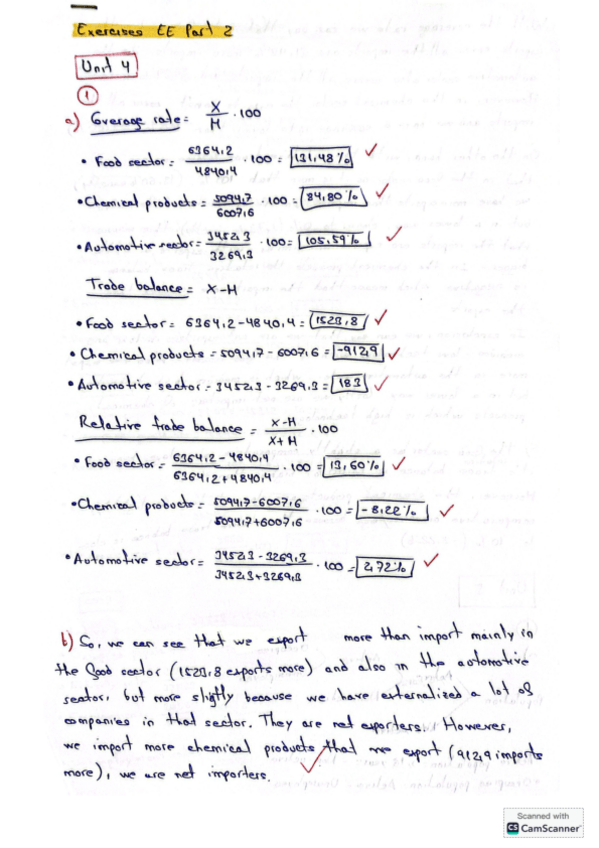 Exercises EE Part 2
Unit 4
1
a) Coverage rate = X/M · 100
• Food sector = 6364,2/4840,4 · 100 = 131,48%
• Chemical products = 5094,7/6007,6 · 100 = 84,80%
• Automotive sector = 3452,3/3269,3 · 100 = 105,59%
Trade balance = X-M
• Food sector = 6364,2-4840,4 = 1523,8
• Chemical products = 5094,7-6007,6 = -912,9
• Automotive sector = 3452,3-3269,3 = 183
Relative trade balance = X-M/X+M · 100
• Food sector = 6364,2-4840,4/6364,2+4840,4 · 100 = 13,60%
• Chemical products = 5094,7-6007,6/5094,7+6007,6 · 100 = -8,22%
• Automotive sector = 3452,3-3269,3/3452,3+3269,3 · 100 = 2,72%
b) So, we can see that we export more than import mainly in
the food sector (1523,8 exports more) and also in the automotive
sector, but more slightly because we have externalized a lot of
companies in that sector. They are net exporters. However,
we import more chemical products that we export (912,9 imports
more), we are net importers.
Scanned with
CS CamScanner